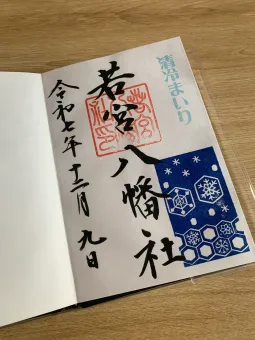 清冷まいり
若宮八幡社
令和七年十二月九日